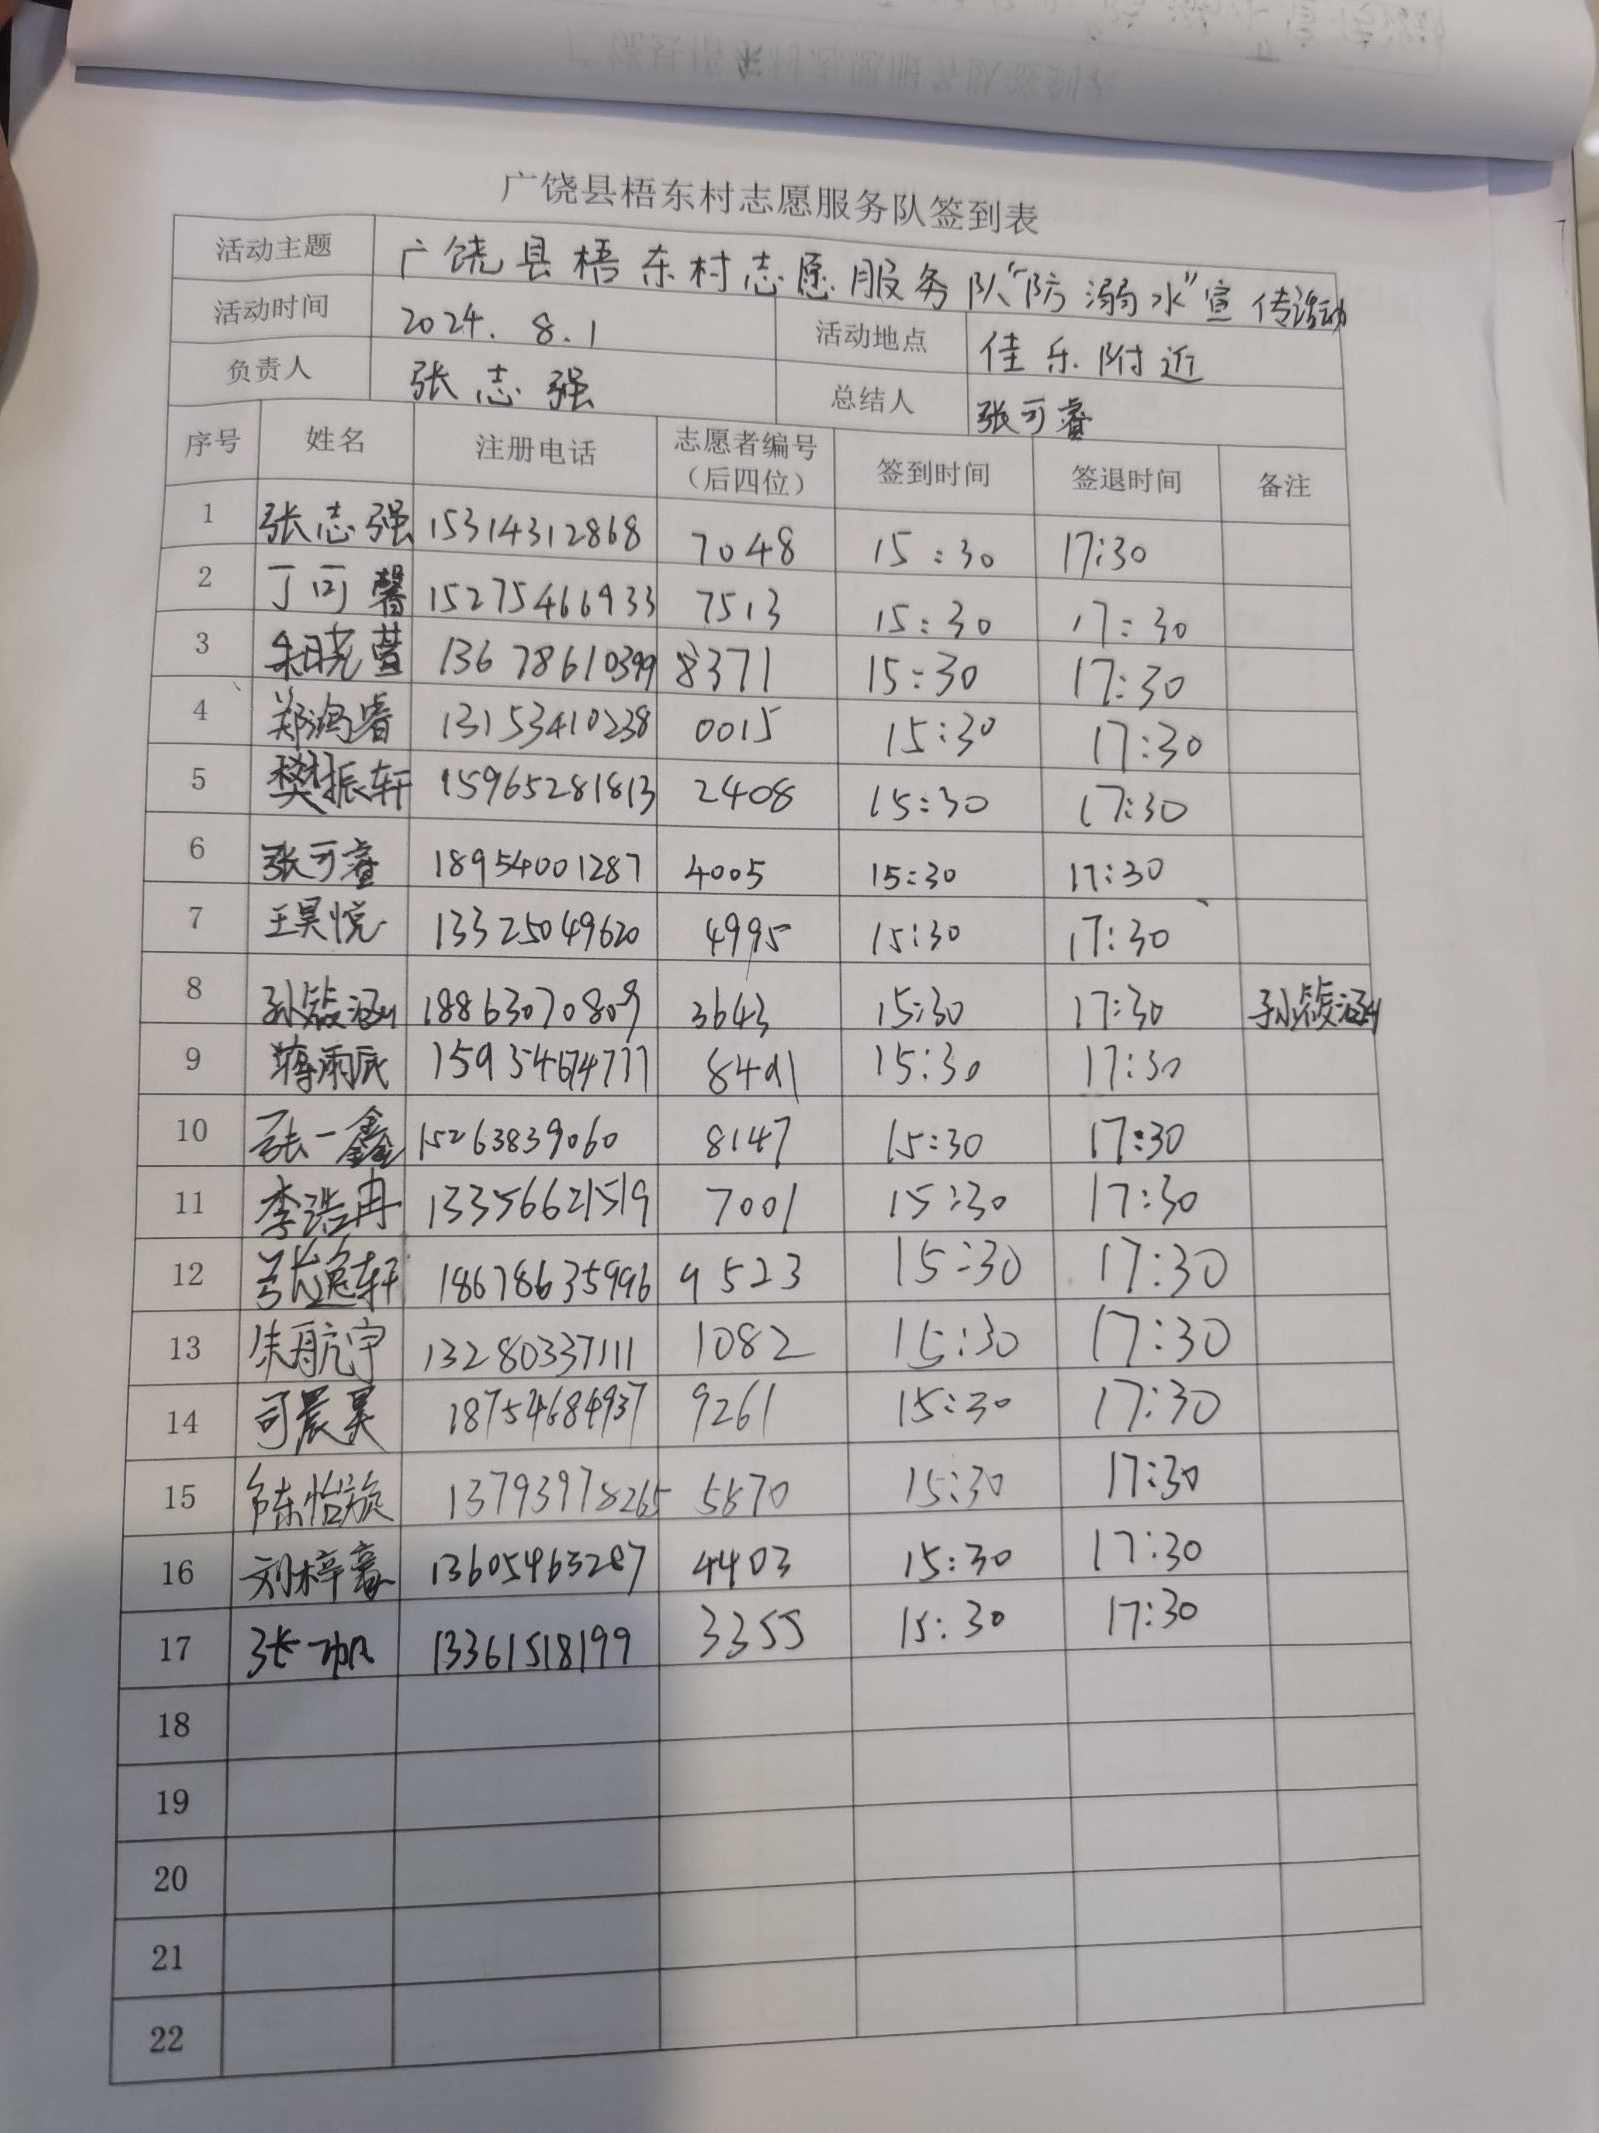 广饶县梧东村志愿服务队签到表
活动主题 广饶县梧东村志愿服务队“防溺水”宣传活动
活动时间 2024.8.1 活动地点 佳乐附近
负责人 张志强 总结人 张可睿
序号 姓名 注册电话 志愿者编号（后四位） 签到时间 签退时间 备注
1 张志强 15314312868 7048 15:30 17:30
2 丁可馨 15275466933 7513 15:30 17:30
3 朱晓萱 13678610399 8371 15:30 17:30
4 郑鸿睿 13153410238 0015 15:30 17:30
5 樊振轩 15965281813 2408 15:30 17:30
6 张可睿 18954001287 4005 15:30 17:30
7 王昊悦 13325049620 4995 15:30 17:30
8 孙筱涵 18863070809 3643 15:30 17:30 孙筱涵
9 蒋雨辰 15954674777 8491 15:30 17:30
10 张一鑫 15263839060 8147 15:30 17:30
11 李浩冉 13356621519 7001 15:30 17:30
12 张逸轩 18678635996 9523 15:30 17:30
13 朱航宇 13280337111 1082 15:30 17:30
14 司晨昊 18754684937 9261 15:30 17:30
15 陈怡璇 13793978265 5870 15:30 17:30
16 刘梓豪 13605463287 4403 15:30 17:30
17 张一帆 13361518199 3355 15:30 17:30
18
19
20
21
22